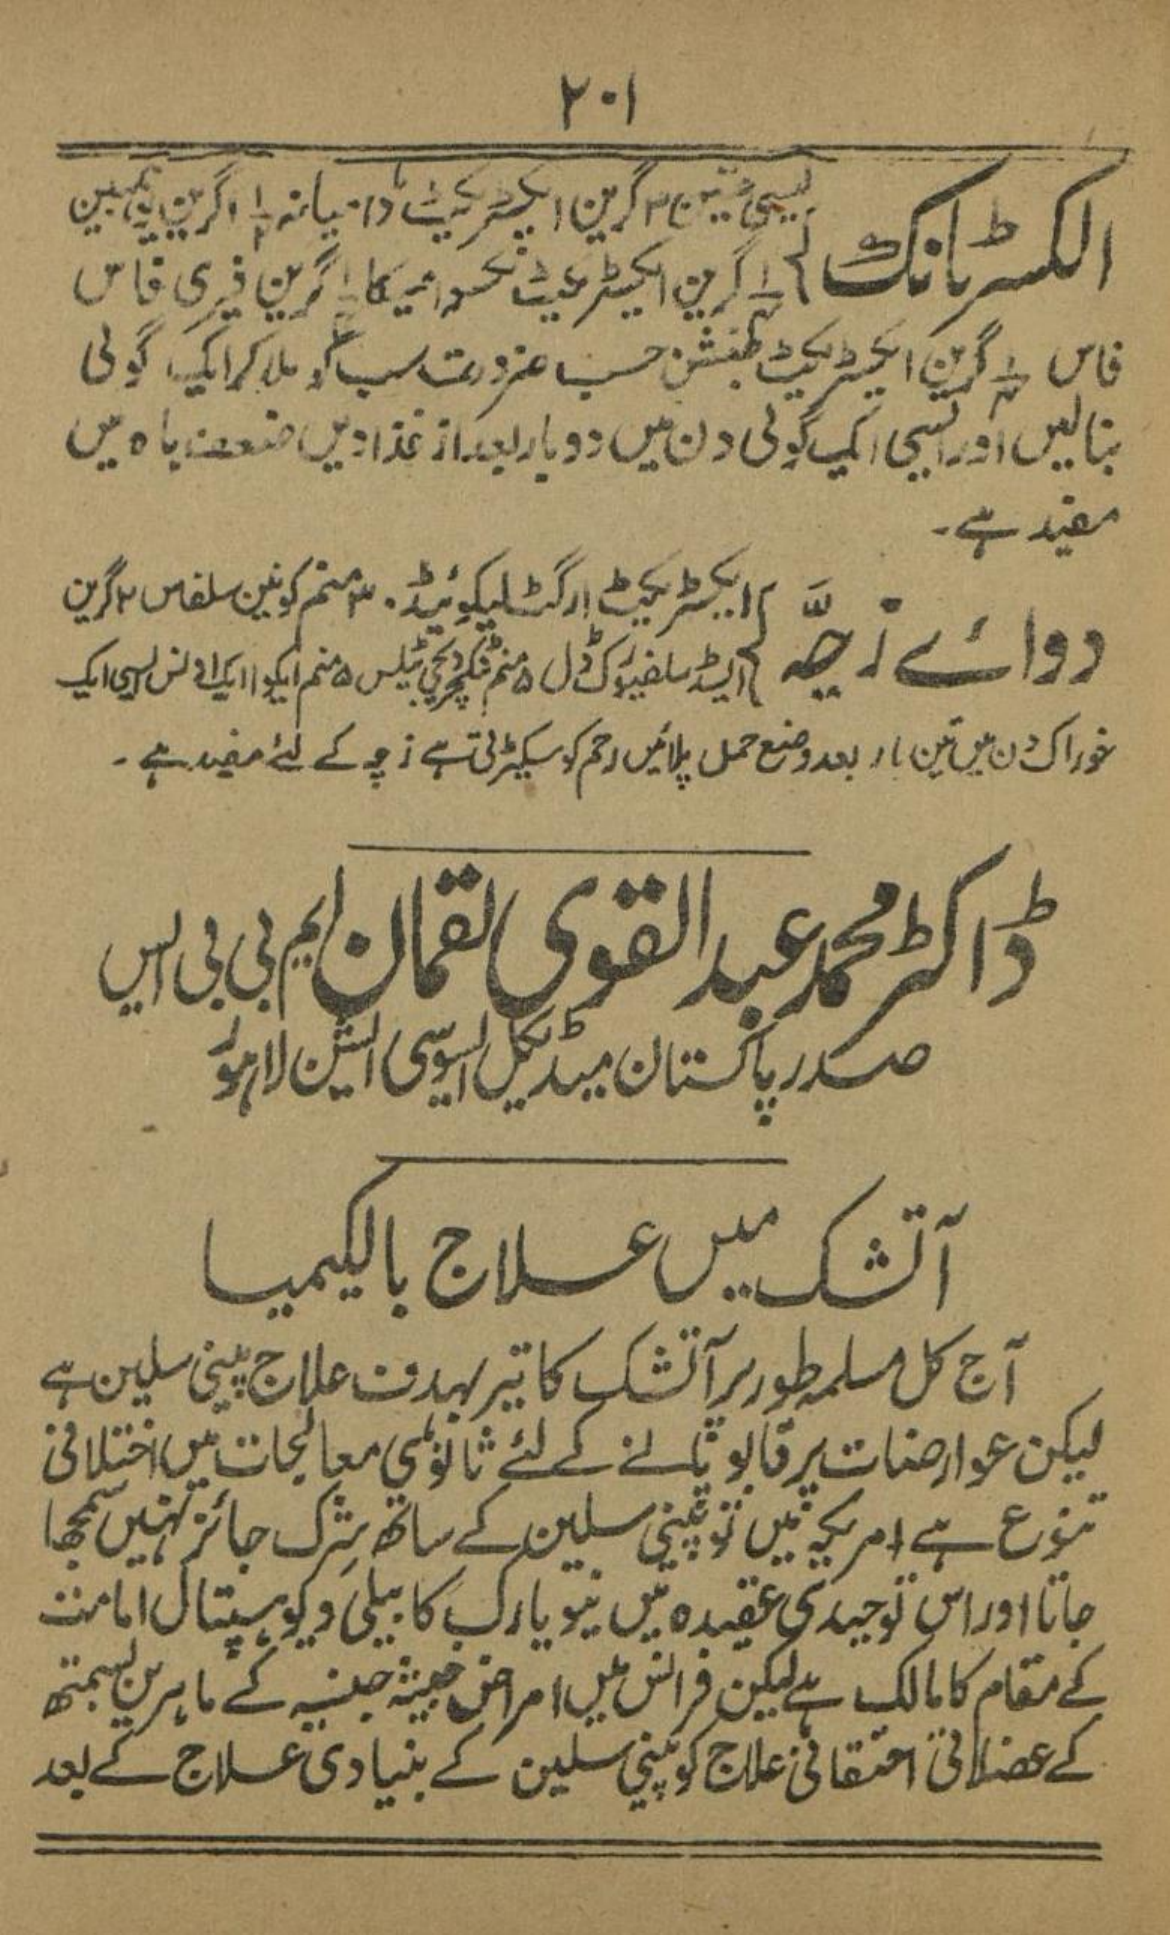 ۲۰۱
الکسر ٹانک } لیسی تھین ۳ گرین ایکسٹریکٹ ڈامیانہ ۱/۲ ۱ گرین
۱/۴ گرین ایکسٹریکٹ نکسوامیکا ۱/۴ گرین فیری فاس
فاس ۱/۴ گرین ایکسٹریکٹ جنشن حسب ضرورت سب کو ملا کر ایک گولی
بنالیں اور ایسی ایک گولی دن میں دو بار بعد از غذا دیں ضعف باہ میں
مفید ہے۔
دوائے زچہ } ایکسٹریکٹ ارگٹ لیکوئیڈ ۳۰ منم کونین سلفاس ۲ گرین
ایسڈ سلفیورک ڈل ۵ منم ٹنکچر ڈیجی ٹیلس ۵ منم ایکوا ایک اونس ایسی ایک
خوراک دن میں تین بار بعد وضع حمل پلائیں رحم کو سیکڑتی ہے زچہ کے لئے مفید ہے۔
ڈاکٹر محمد عبد القوی لقمان ایم بی بی ایس
صدر پاکستان میڈیکل ایسوسی ایشن لاہور
آتشک میں علاج بالکیمیا
آج کل مسلمہ طور پر آتشک کا تیر بہدف علاج پینی سلین ہے
لیکن عوارضات پر قابو پانے کے لئے ثانوی معالجات میں اختلافی
تنوع ہے امریکہ میں تو پینی سلین کے ساتھ شرک جائز نہیں سمجھا
جاتا اور اس توحیدی عقیدہ میں نیو یارک کا بیلی ویو ہسپتال امامت
کے مقام کا مالک ہے لیکن فرانس میں امراض خبیثہ جنسیہ کے ماہرین بسمتھ
کے عضلاتی احتقانی علاج کو پینی سلین کے بنیادی علاج کے بعد